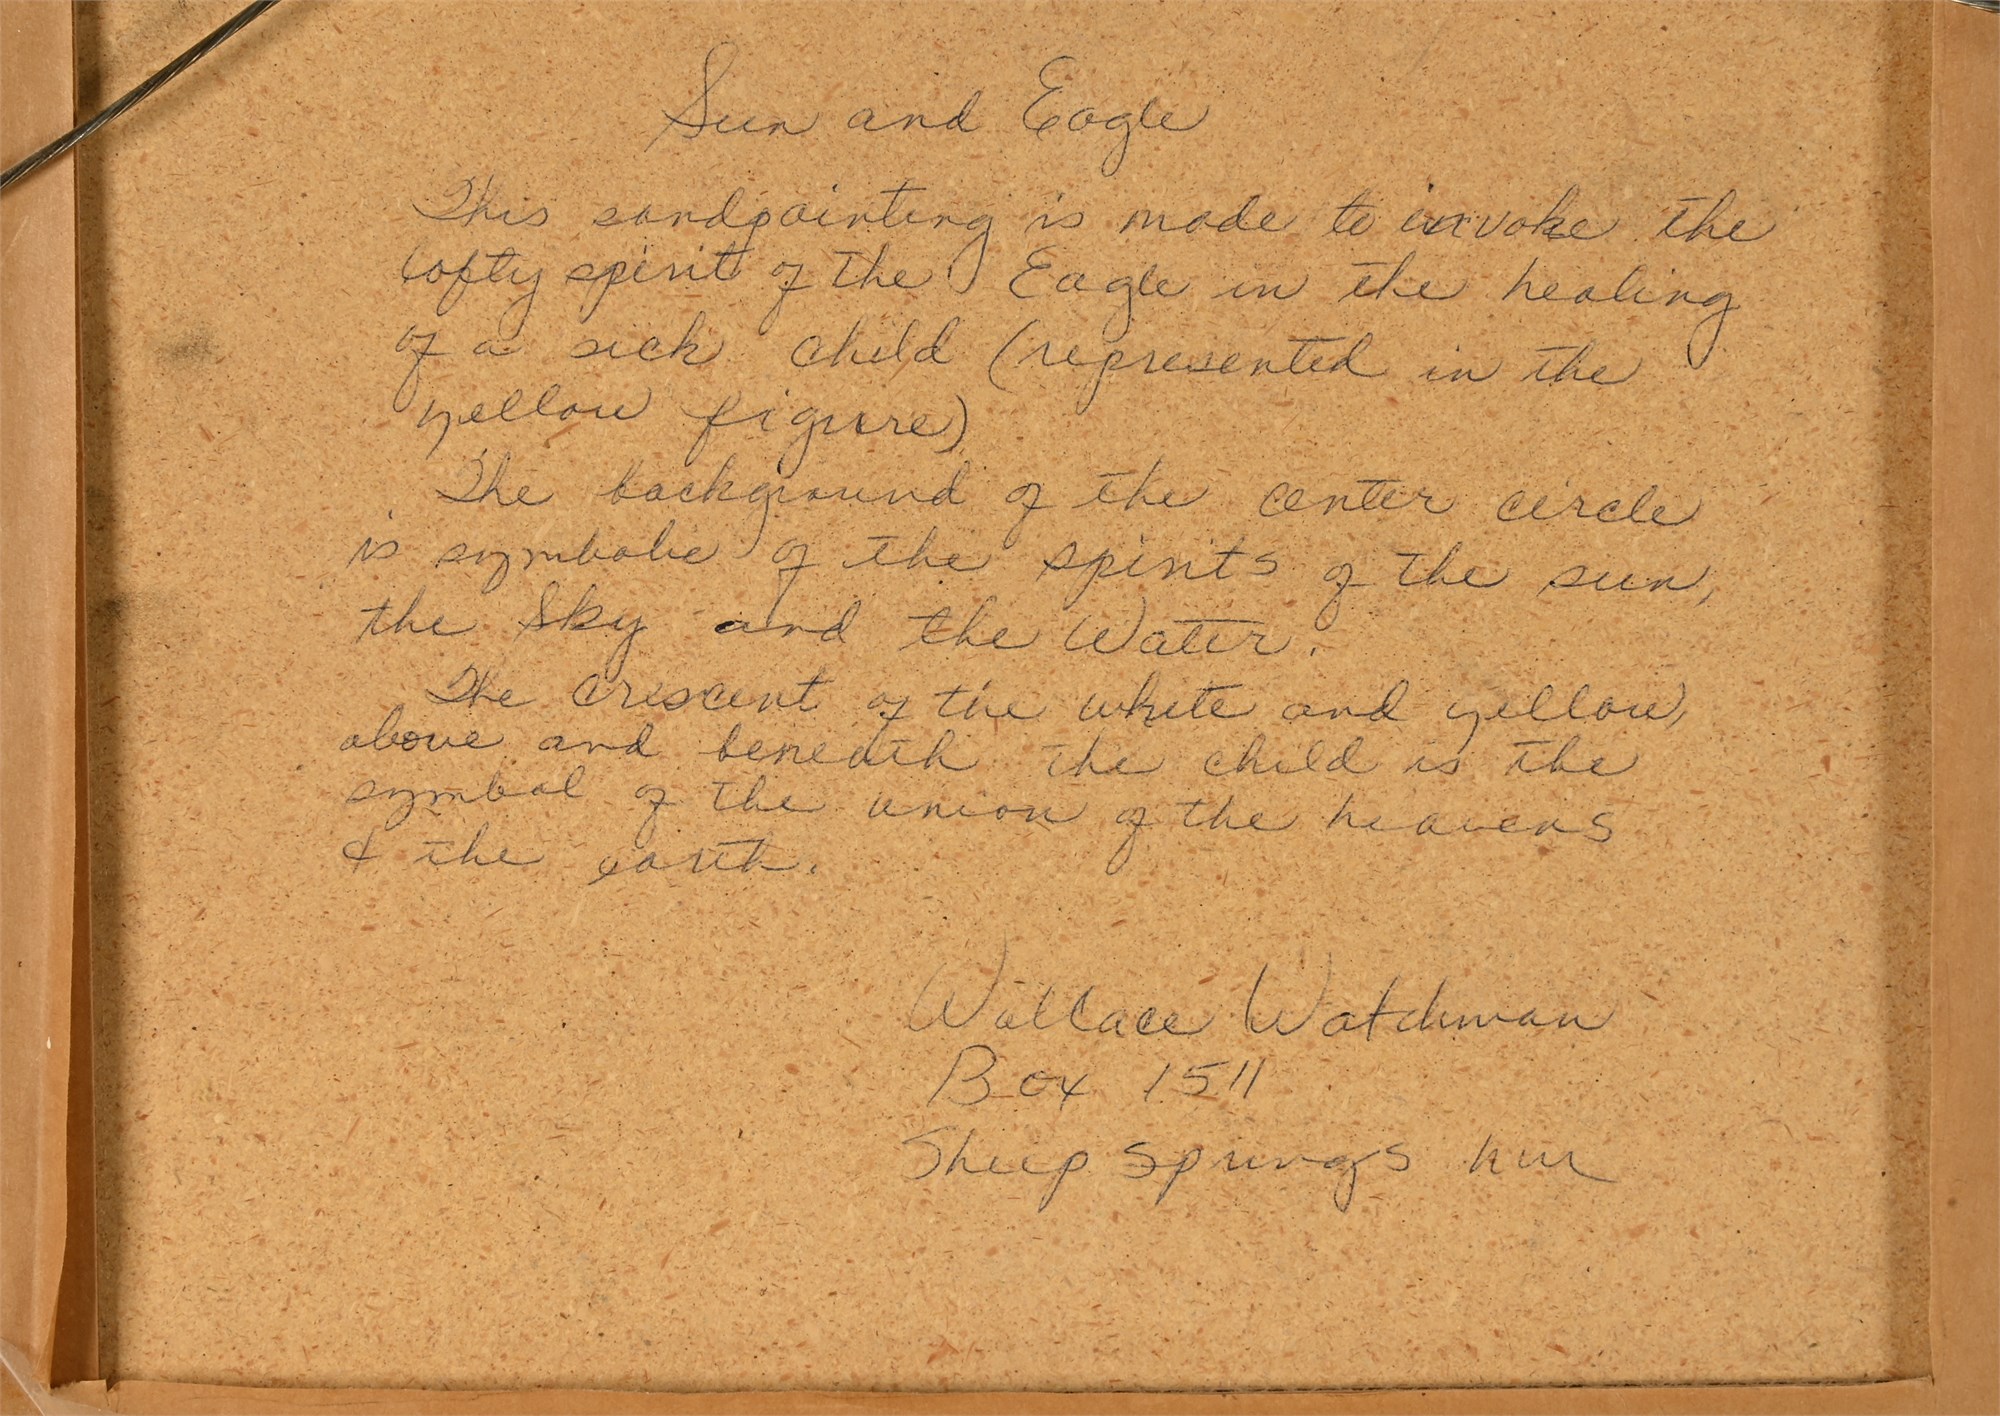 Sun and Eagle
This sandpainting is made to invoke the
lofty spirit of the Eagle in the healing
of a sick child (represented in the
yellow figure)
The background of the center circle
is symbolic of the spirits of the sun,
the Sky and the Water.
The crescent of the white and yellow,
above and beneath the child is the
symbol of the union of the heavens
& the earth.
Wallace Watchman
Box 1511
Sheep Springs nm